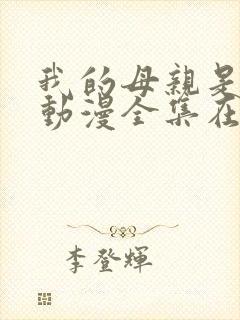 我的母親是
動漫全集在
李登輝